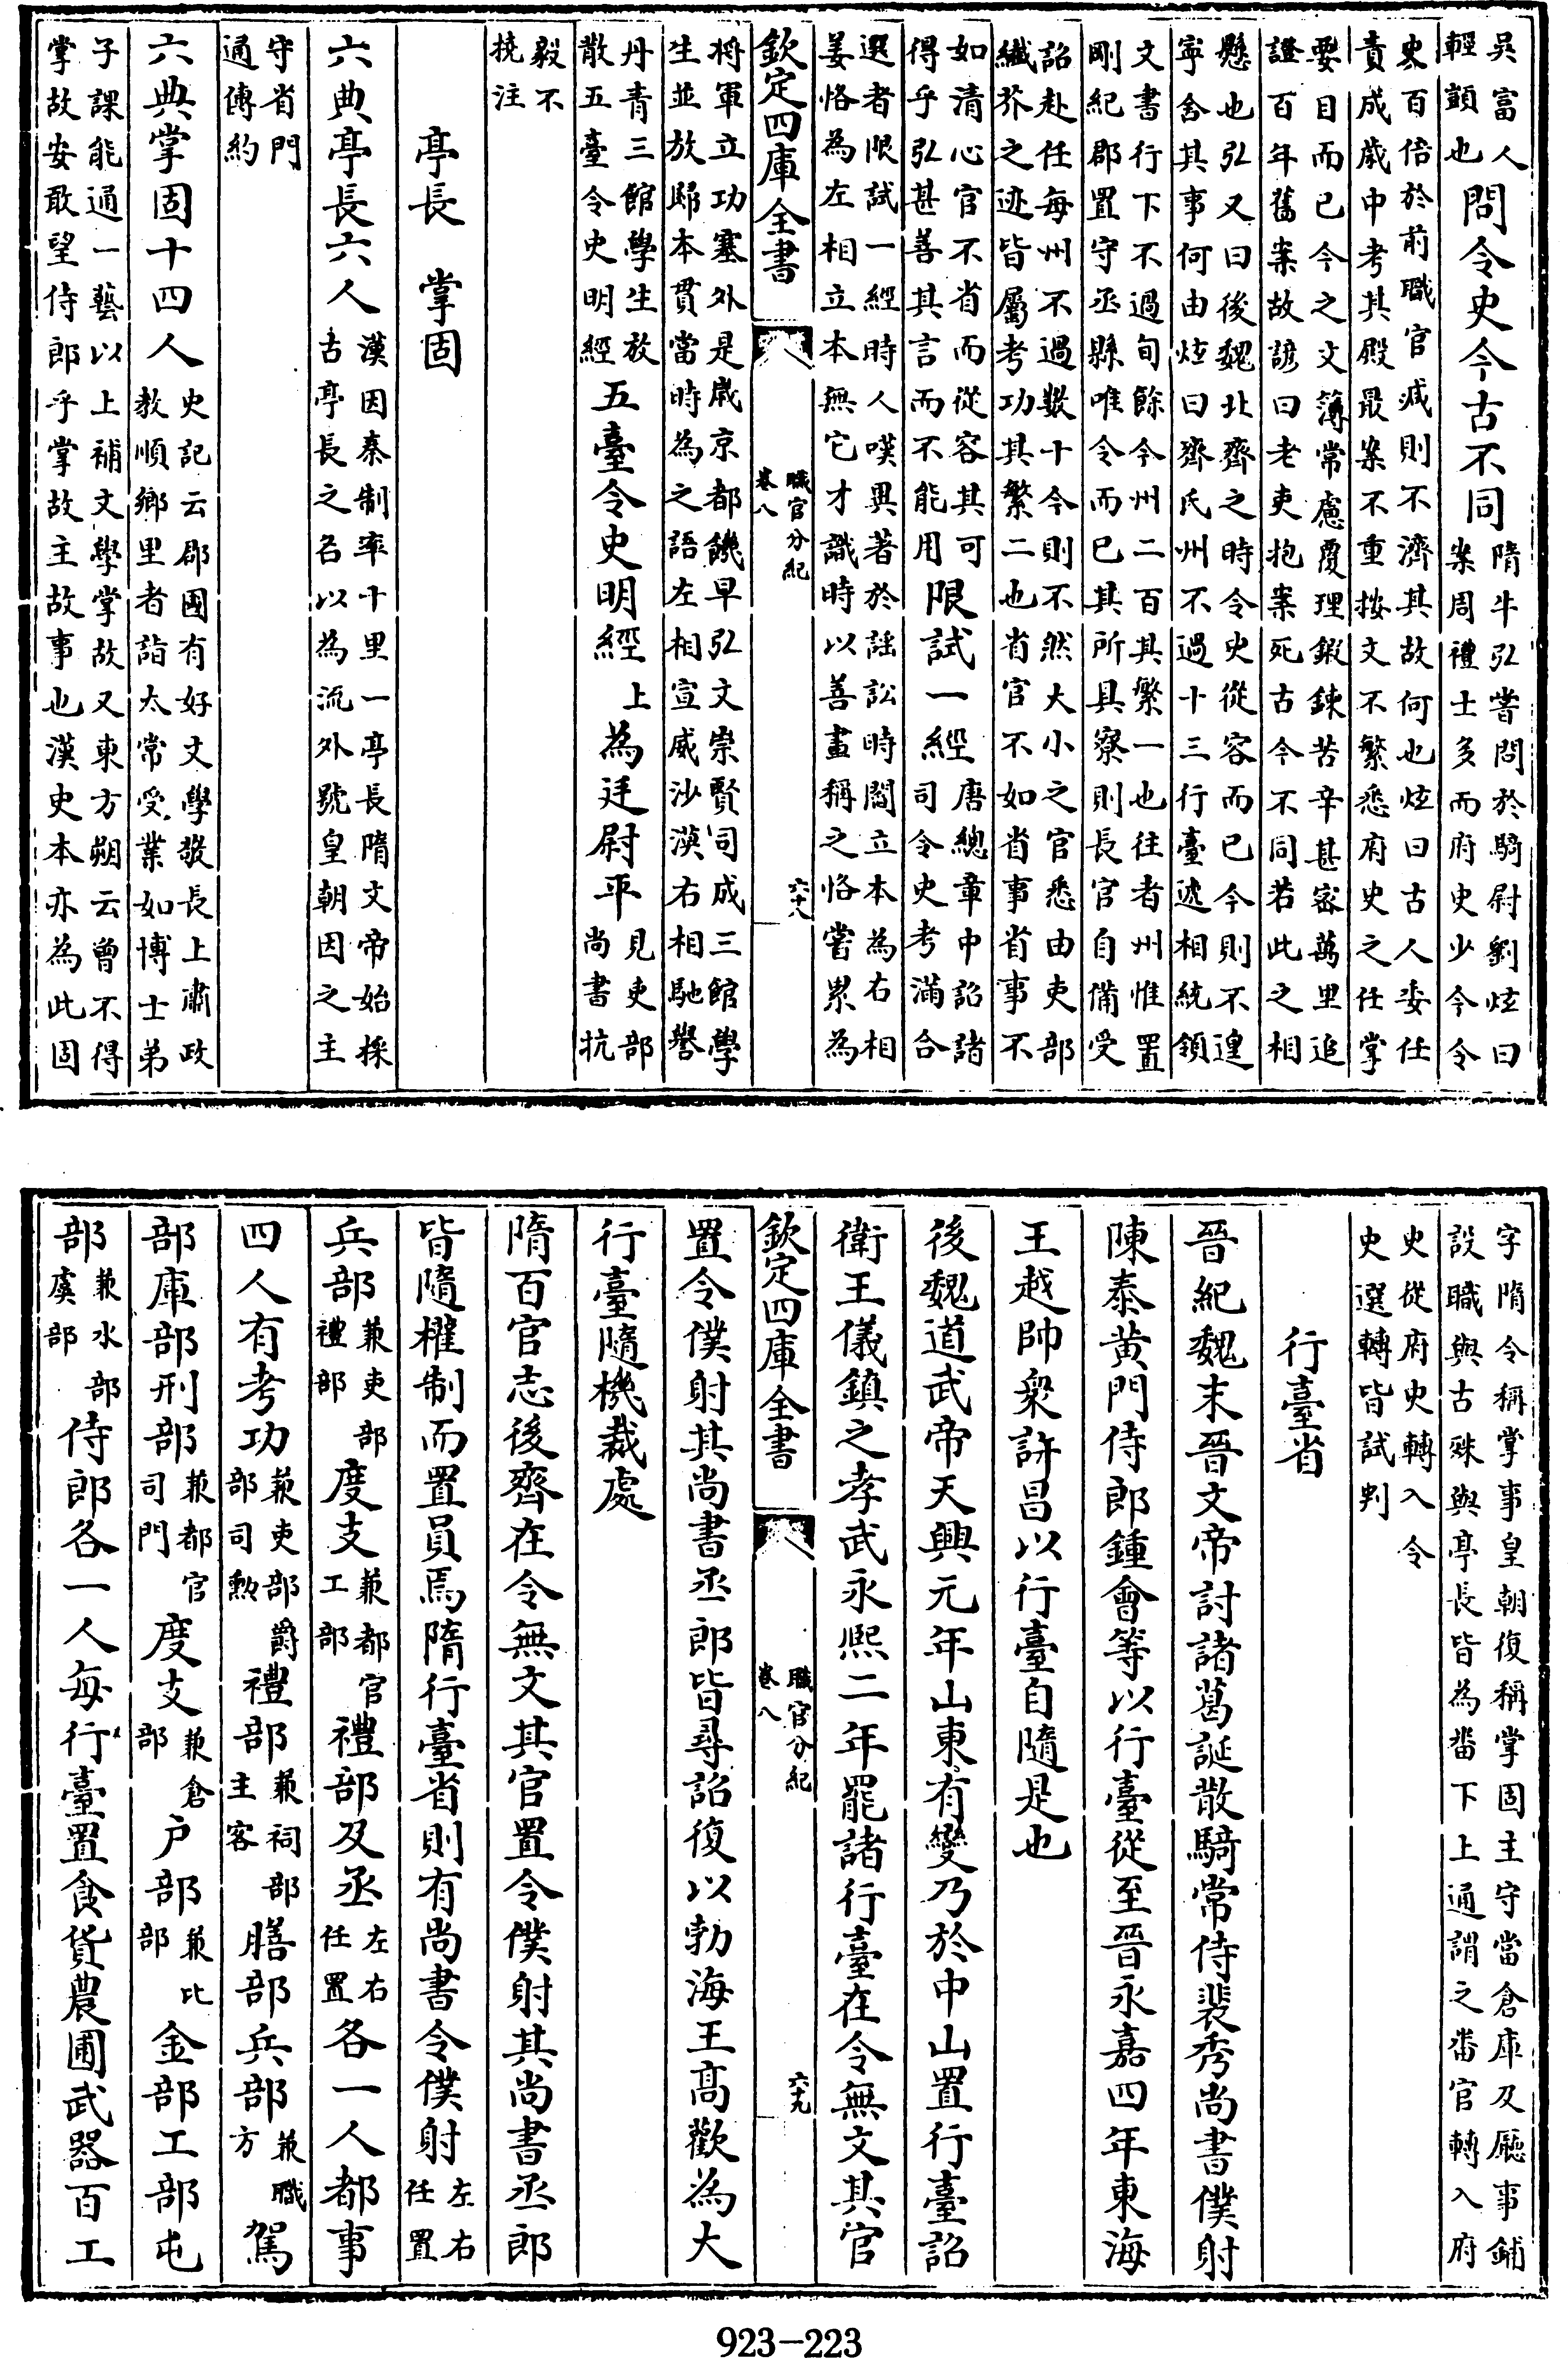 吳富人輕顗也問令史今古不同隋牛弘嘗問於騎尉劉炫曰案周禮士多而府史少今令
史百倍於前職官減則不濟其故何也炫曰古人委任責成歲中考其殿最案不重按文不繁悉府史之任掌
要目而已今之文簿常慮覆理鍛鍊苦辛甚密萬里追證百年舊案故諺曰老吏抱案死古今不同若此之相
懸也弘又曰後魏北齊之時令史從容而已今則不遑寧舍其事何由炫曰齊氏州不過十三行臺遞相統領
文書行下不過旬餘今州二百其繁一也往者州惟置剛紀郡置守丞縣唯令而已其所具寮則長官自備受
詔赴任每州不過數十今則不然大小之官悉由吏部纖芥之迹皆屬考功其繁二也省官不如省事省事不
如清心官不省而從容其可得乎弘甚善其言而不能用限試一經唐總章中詔諸司令史考滿合
選者限試一經時人嘆異著於謡訟時閻立本為右相姜恪為左相立本無它才識時以善畫稱之恪嘗累為
欽定四庫全書 職官分紀卷八 六十八
將軍立功塞外是歲京都饑旱弘文崇賢司成三館學生並放歸本貫當時為之語左相宣威沙漠右相馳譽
丹青三館學生放散五臺令史明經五臺令史明經上為廷尉平見吏部尚書抗
毅不撓注
亭長 掌固
六典亭長六人漢因秦制率十里一亭長隋文帝始採古亭長之名以為流外號皇朝因之主
守省門通傳約
六典掌固十四人史記云郡國有好文學敬長上肅政教順鄉里者詣太常受業如博士弟
子課能通一藝以上補文學掌故又東方朔云曾不得掌故安敢望侍郎乎掌故主故事也漢史本亦為此固
字隋令稱掌事皇朝復稱掌固主守當倉庫及廳事鋪設職與古殊與亭長皆為畨下上通謂之畨官轉入府
史從府史轉入令史選轉皆試判
行臺省
晉紀魏末晉文帝討諸葛誕散騎常侍裴秀尚書僕射
陳泰黃門侍郎鍾會等以行臺從至晉永嘉四年東海
王越帥衆許昌以行臺自隨是也
後魏道武帝天興元年山東有變乃於中山置行臺詔
衛王儀鎮之孝武永熙二年罷諸行臺在令無文其官
欽定四庫全書 職官分紀卷八 六十九
置令僕射其尚書丞郎皆尋詔復以勃海王高歡為大
行臺隨機裁處
隋百官志後齊在令無文其官置令僕射其尚書丞郎
皆隨權制而置員焉隋行臺省則有尚書令僕射左右任置
兵部兼吏部禮部度支兼都官工部禮部及丞左右任置各一人都事
四人有考功兼吏部爵部司勲禮部兼祠部主客膳部兵部兼職方駕
部庫部刑部兼都官司門度支兼倉部户部兼比部金部工部屯
部兼水部虞部侍郎各一人每行臺置食貨農圃武器百工
923－223